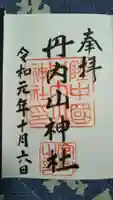 奉拝
丹内山神社
令和元年十月六日